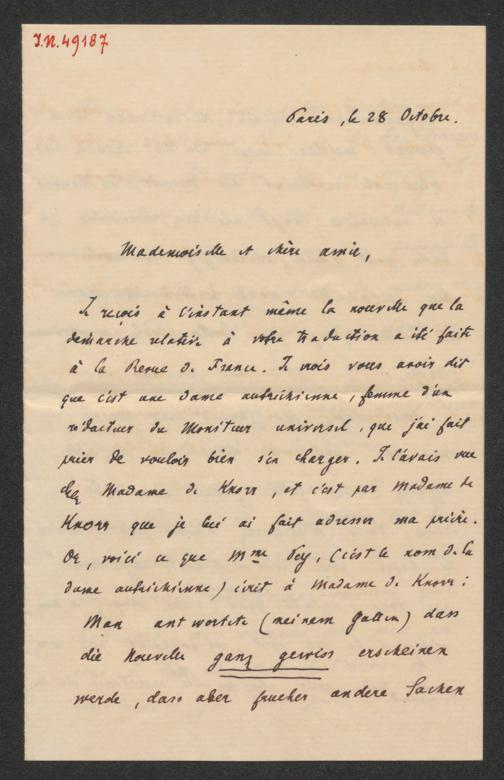 I.N. 49187
Paris, le 28 Octobre.
Mademoiselle et chère amie,
Je reçois à l'instant même la nouvelle que la
démarche relative à votre traduction a été faite
à la Revue de France. Je crois vous avoir dit
que c'est une dame autrichienne, femme d'un
rédacteur du Moniteur universel, que j'ai fait
prier de vouloir bien s'en charger. Je l'avais vue
chez Madame de Knorr, et c'est par Madame de
Knorr que je lui ai fait adresser ma prière.
Or, voici ce que Mme Pey, (c'est le nom de la
dame autrichienne) écrit à Madame de Knorr:
Man antwortete (meinem Gatten) dass
die Nouvelle ganz gewiss erscheinen
werde, dass aber frueher andere Sachen